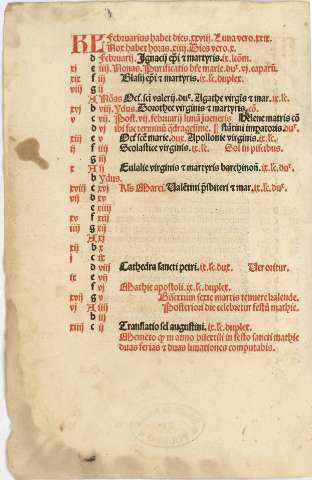 KL Februarius habet dies.xxviij. Luna vero.xxix.
Nox habet horas.xiiij. Dies vero.x.
d Februarij. Ignacij epi & martyris.ix.lcom.
xj e iiij Nonas. Purificatio bte marie.du. vj. caparu.
xix f iij Blasij epi & martyris.ix.sc.duplex.
viij g ij
A Nonas Oct. sci valerij.du. Agathe virginis & mar.ix.sc.
xvj b viij Ydus. Dorothee virginis & martyris.co.
v c vij Post.vij.februarij lunā iueneris Helene matris cō
d vj ibi fac terminū qdragesime. stātini impatoris du.
xiij e v Oct cē marie.du. Apollonie virginis.ix.sc.
ij f iiij Scolastice virginis.ix.sc. Sol in piscibus.
g iij
x A ij Eulalie virginis & martyris barchinon.ix.sc.du.
b Ydus.
xviij c xvj Kls Marci. Valentini psbiteri & mar.ix.sc.du.
vij d xv
e xiiij
xv f xiij
iiij g xij
A xj
xij b x
j c ix
d viij Cathedra sancti petri.ix.sc.dux. Ver oritur.
ix e vij
f vj Mathie apostoli.ix.sc.duplex.
xvij g v Bisextum sexte martis tenuere kalende.
vj A iiij Posteriori die celebratur festū mathie.
b iij
xiiij c ij Translatio sci augustini.ix.sc.duplex.
Memeto q in anno bisextili in festo sancti mathie
duas ferias & duas lunationes computabis.